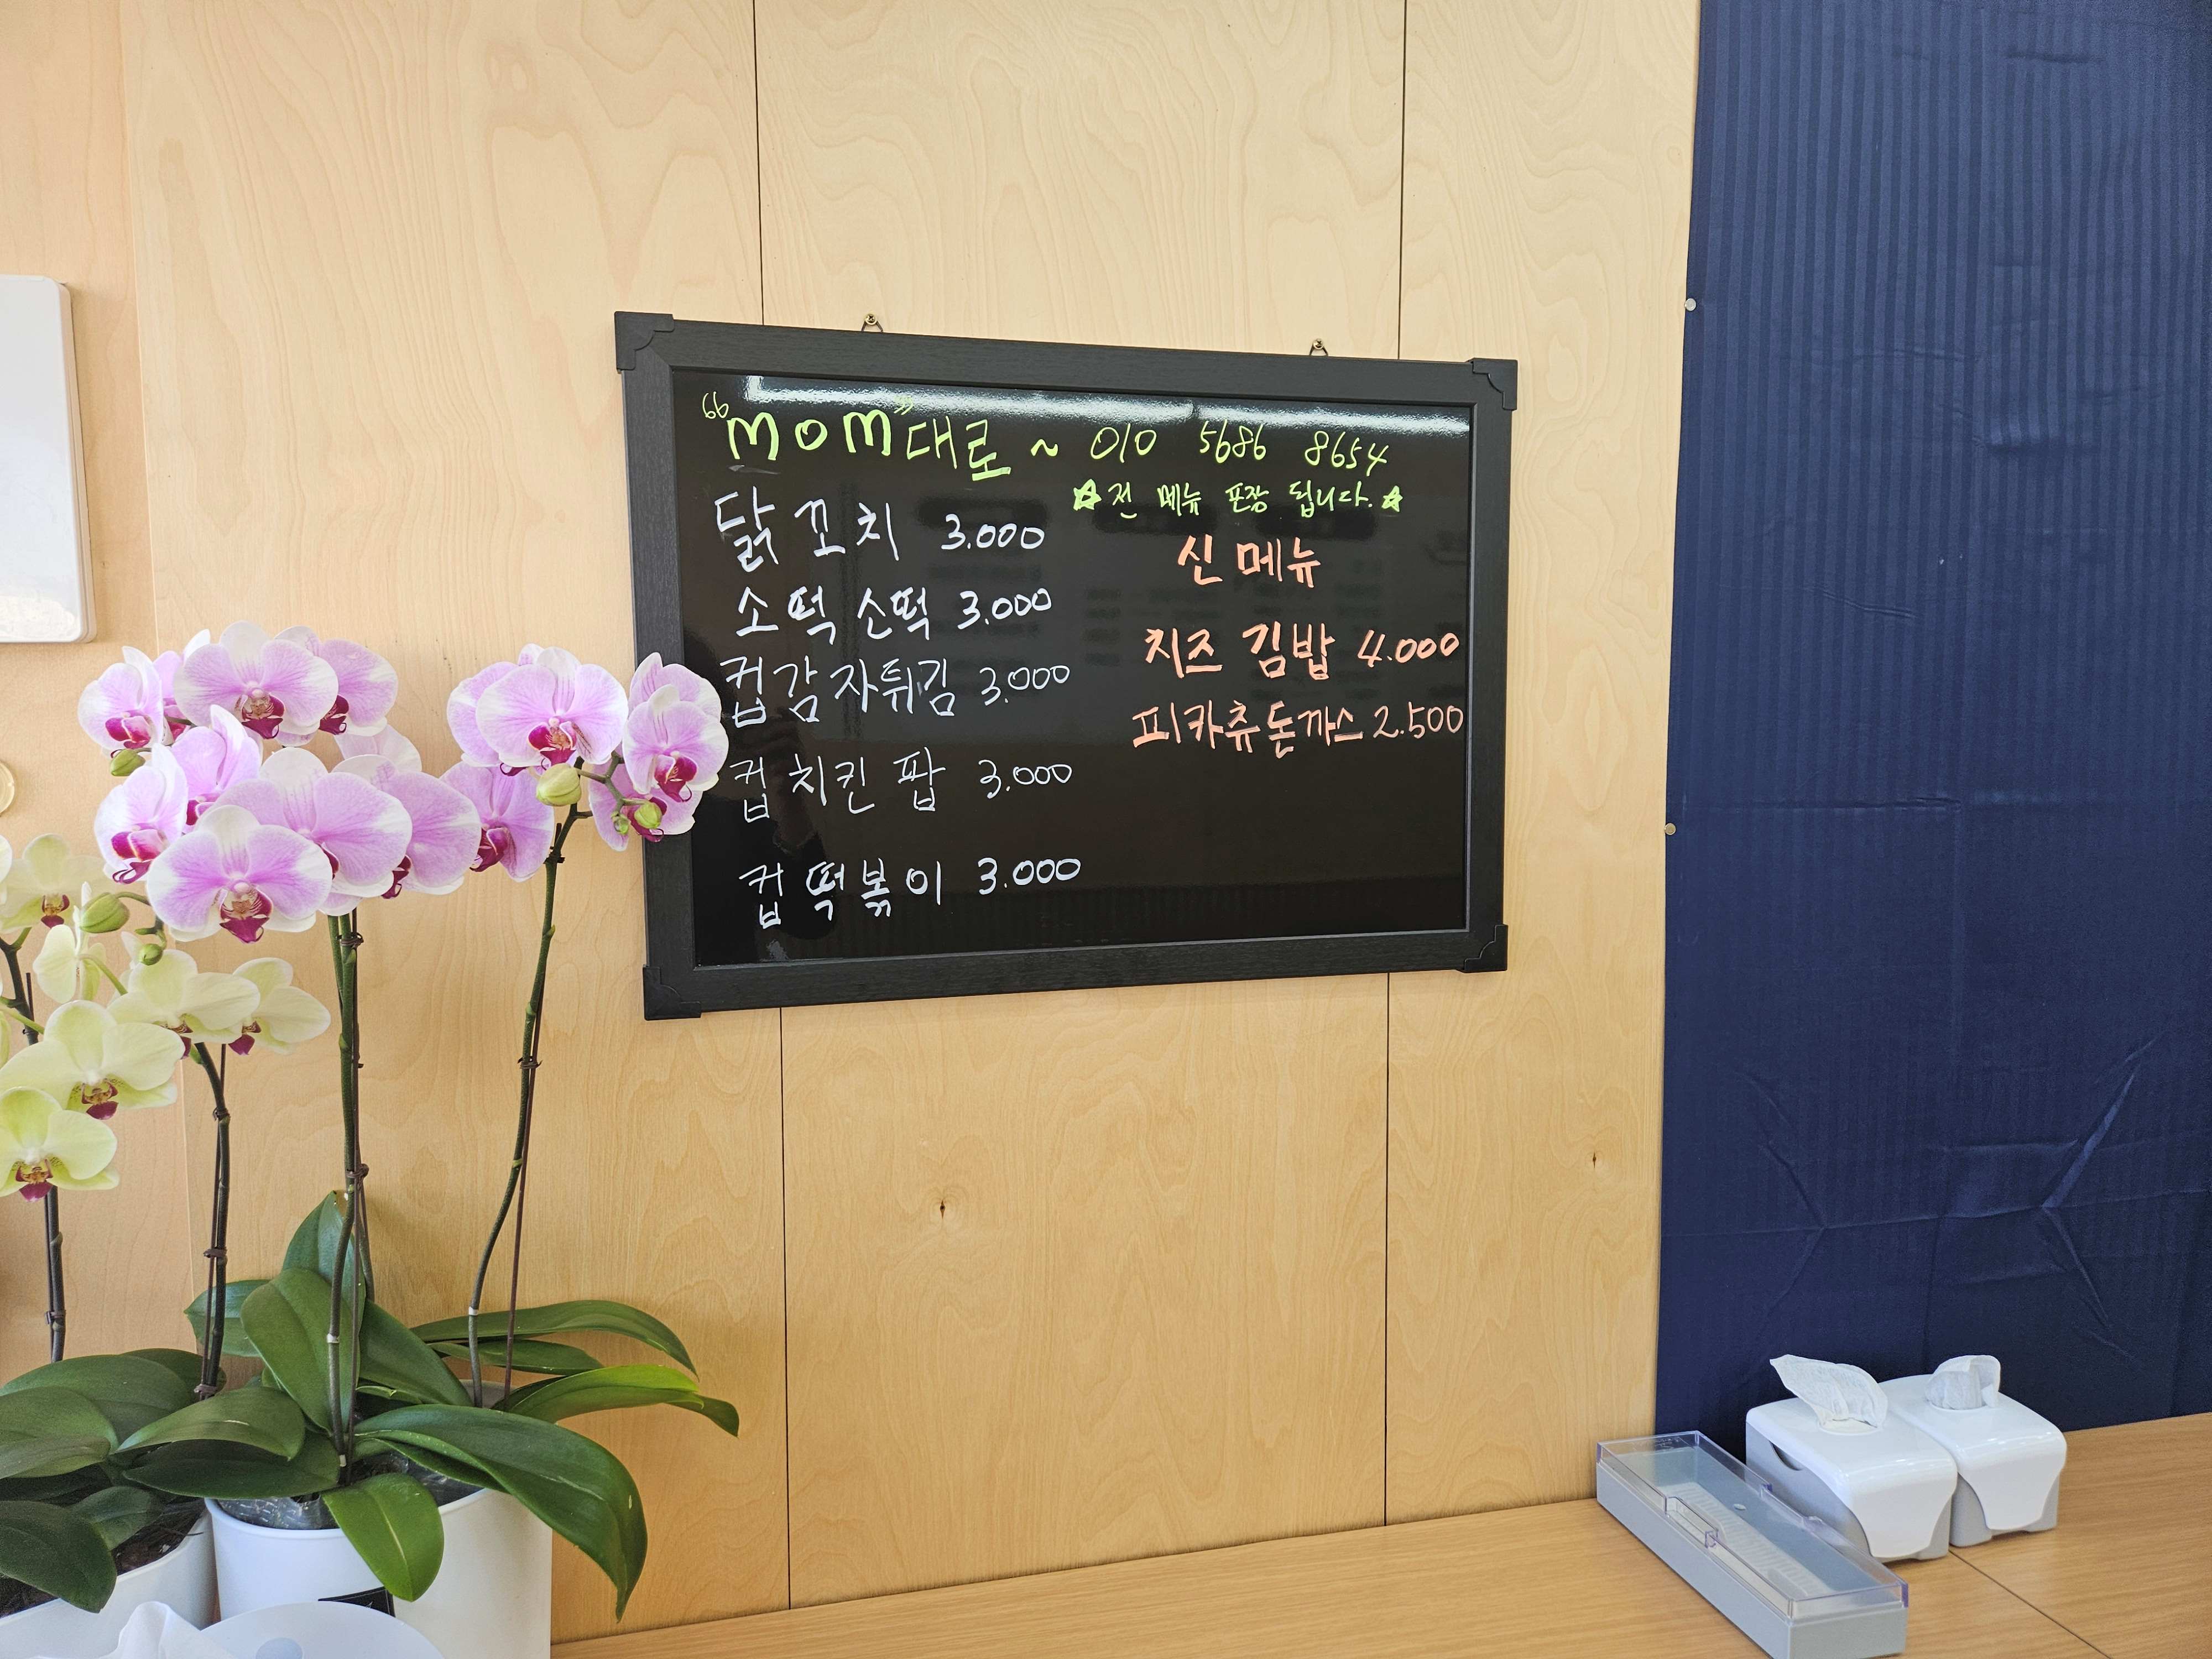 "MOM"대로~ 010 5686 8654
☆전 메뉴 포장 됩니다.☆
닭꼬치 3.000
소떡소떡 3.000
컵감자튀김 3.000
컵치킨팝 3.000
컵떡볶이 3.000
신메뉴
치즈김밥 4.000
피카츄돈까스 2.500